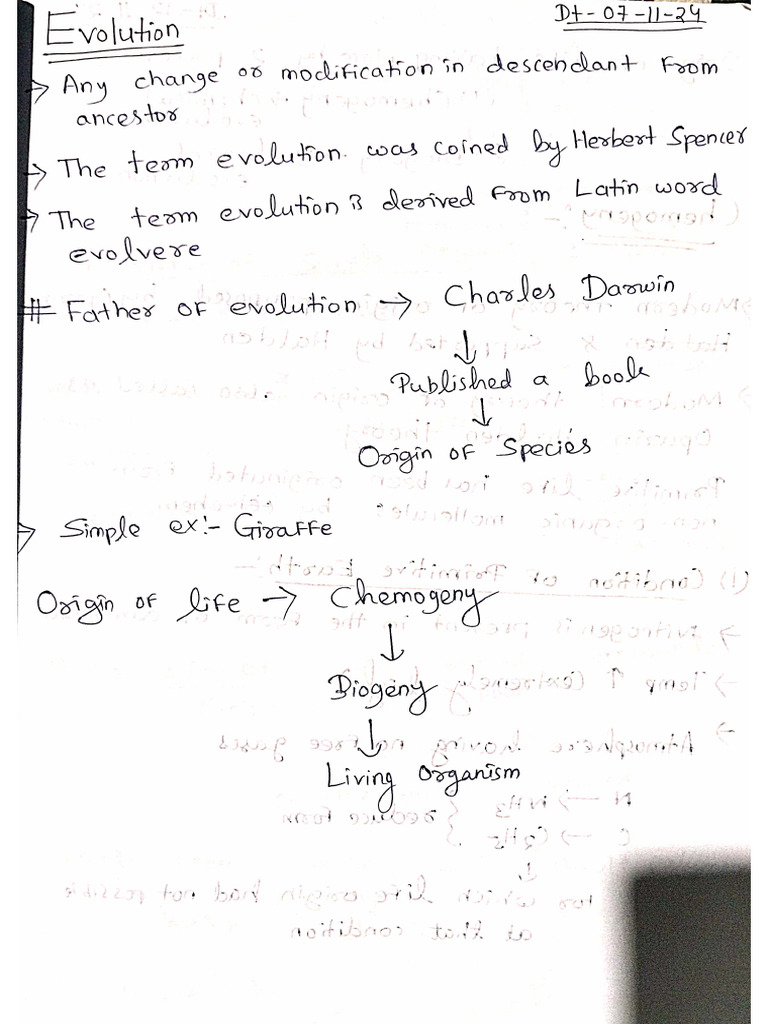 Evolution
Dt-07-11-24
→ Any change or modification in descendant from
ancestor
→ The term evolution was coined by Herbert Spencer
→ The term evolution is derived from Latin word
evolvere
# Father of evolution → Charles Darwin
↓
Published a book
↓
Origin of Species
→ Simple ex:- Giraffe
Origin of life → Chemogeny
↓
Biogeny
↓
Living Organism